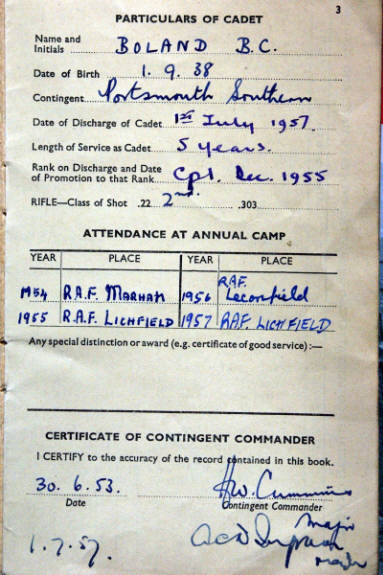 3
PARTICULARS OF CADET
Name and Initials BOLAND B.C.
Date of Birth 1. 9. 38
Contingent Portsmouth Southern
Date of Discharge of Cadet 1st July 1957.
Length of Service as Cadet 5 years.
Rank on Discharge and Date of Promotion to that Rank Cpl. Dec. 1955
RIFLE—Class of Shot .22 2nd. .303
ATTENDANCE AT ANNUAL CAMP
YEAR PLACE YEAR PLACE
1954 R.A.F. MARHAM 1956 RAF. Leconfield
1955 R.A.F. LICHFIELD 1957 RAF. LICHFIELD
Any special distinction or award (e.g. certificate of good service):—
CERTIFICATE OF CONTINGENT COMMANDER
I CERTIFY to the accuracy of the record contained in this book.
30. 6. 53. H.W. Cummins
Date Contingent Commander
Major
1. 7. 57.